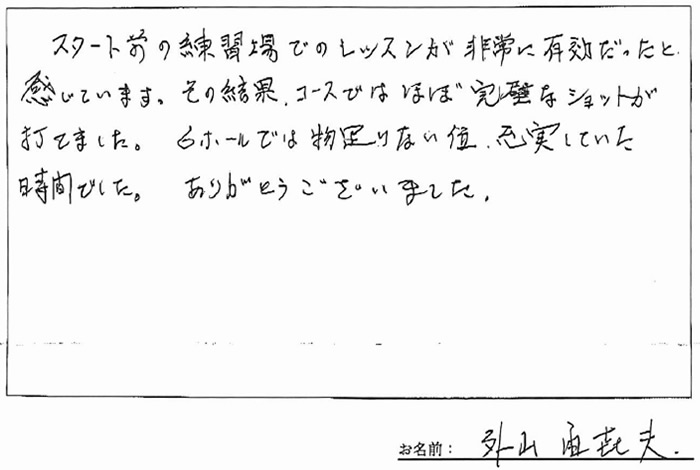 スタート前の練習場でのレッスンが非常に有効だったと
感じています。その結果、コースではほぼ完璧なショットが
打てました。6ホールでは物足りない位、充実していた
時間でした。ありがとうございました。
お名前: 外山 直喜夫.